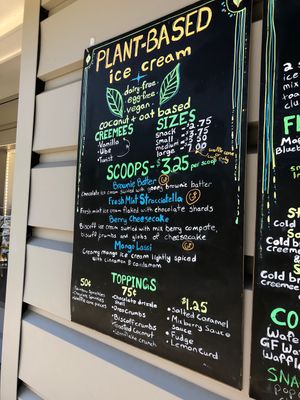 PLANT-BASED
ice cream
dairy-free
egg-free
vegan
coconut + oat based
CREEMEES
• Vanilla
• Vibe
• Twist
SIZES
snack - 2.75
small - 3.75
medium - 5.50
large - 7.00
SCOOPS - $3.25 per scoop
Brownie Batter
Chocolate ice cream swirled with brownie batter
Fresh Mint Stracciatella
Fresh mint ice cream flaked with chocolate shards
Berry Cheesecake
Biscoff ice cream swirled with mix berry compote,
biscoff crumbs and globs of cheesecake
Mango Lassi
Creamy mango ice cream lightly spiced
with cinnamon & cardamom
TOPPINGS
50¢
• Rainbow Sprinkles
• Chocolate Sprinkles
75¢
• Chocolate drizzle
shell
• Oreo crumbs
• Biscoff crumbs
• Toasted Coconut
crunch
$1.25
• Salted Caramel
• Mixberry Sauce
Sauce
• Fudge
• Lemon Curd
Cold b
Cold br
creemee
CO
Wafe
GF W
Waffl
SNA